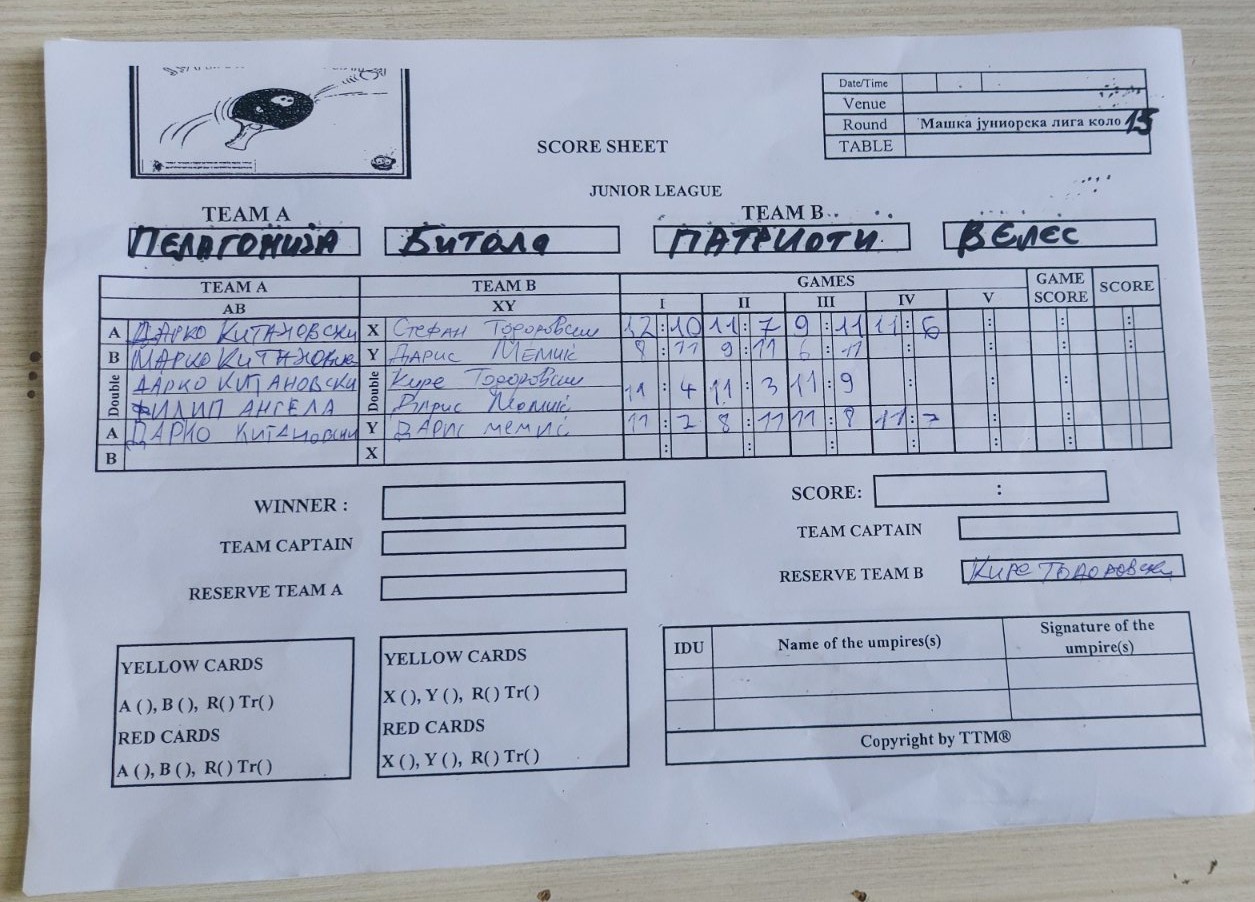 Date/Time
Venue
Round Машка јуниорска лига коло 15
TABLE
SCORE SHEET
JUNIOR LEAGUE
TEAM A TEAM B
ПЕЛАГОНИЈА БИТОЛА ПАТРИОТИ ВЕЛЕС
TEAM A TEAM B GAMES GAME SCORE SCORE
AB XY I II III IV V
A ДАРКО КИТАНОВСКИ X Стефан Тодоровски 12 : 10 11 : 7 9 : 11 11 : 6 : : :
B МАРКО Y ДАРИС МЕМИЌ 8 : 11 9 : 11 6 : 11 : : : :
Double ДАРКО КИТАНОВСКИ Double Кире Тодоровски 11 : 4 11 : 3 11 : 9 : : :
ФИЛИП АНГЕЛА Дарис Мемиќ
A ДАРКО КИТАНОВСКИ Y ДАРИС МЕМИЌ 11 : 2 8 : 11 11 : 8 11 : 7 : : :
B X : : : : : : :
WINNER : SCORE: :
TEAM CAPTAIN TEAM CAPTAIN
RESERVE TEAM A RESERVE TEAM B Кире Тодоровски
YELLOW CARDS
A ( ), B ( ), R( ) Tr( )
RED CARDS
A ( ), B ( ), R( ) Tr( )
YELLOW CARDS
X ( ), Y ( ), R( ) Tr( )
RED CARDS
X ( ), Y ( ), R( ) Tr( )
IDU Name of the umpires(s) Signature of the umpire(s)
Copyright by TTM®